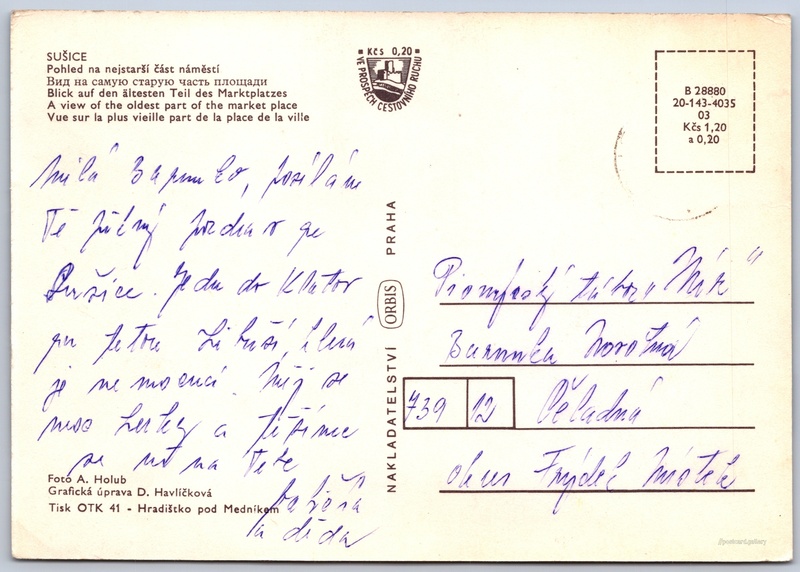 SUŠICE
Pohled na nejstarší část náměstí
Вид на самую старую часть площади
Blick auf den ältesten Teil des Marktplatzes
A view of the oldest part of the market place
Vue sur la plus vieille part de la place de la ville
Kčs 0,20
VE PROSPĚCH CESTOVNÍHO RUCHU
B 28880
20-143-4035
03
Kčs 1,20
a 0,20
Milá Barunko, posílám
Tě pěkný pozdrav ze
Sušice. Jedu do Klatov
pro tetou Libuší, která
je nemocná. Měj se
moc hezky a těšíme
se na Tebe
babička
a děda
Foto A. Holub
Grafická úprava D. Havlíčková
Tisk OTK 41 - Hradištko pod Medníkem
NAKLADATELSTVÍ ORBIS PRAHA
Pionýrský tábor „
Barunka Novotná
739 12 Čeladná
okres Frýdek Místek